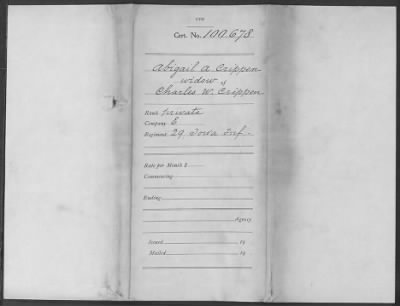 Cert. No. 100.678
Abigail A Crippen
widow of
Charles W. Crippen
Rank Private
Company E
Regiment 29 Iowa Inf.
Rate per Month $
Commencing
Ending
Agency
Issued 19
Mailed 19